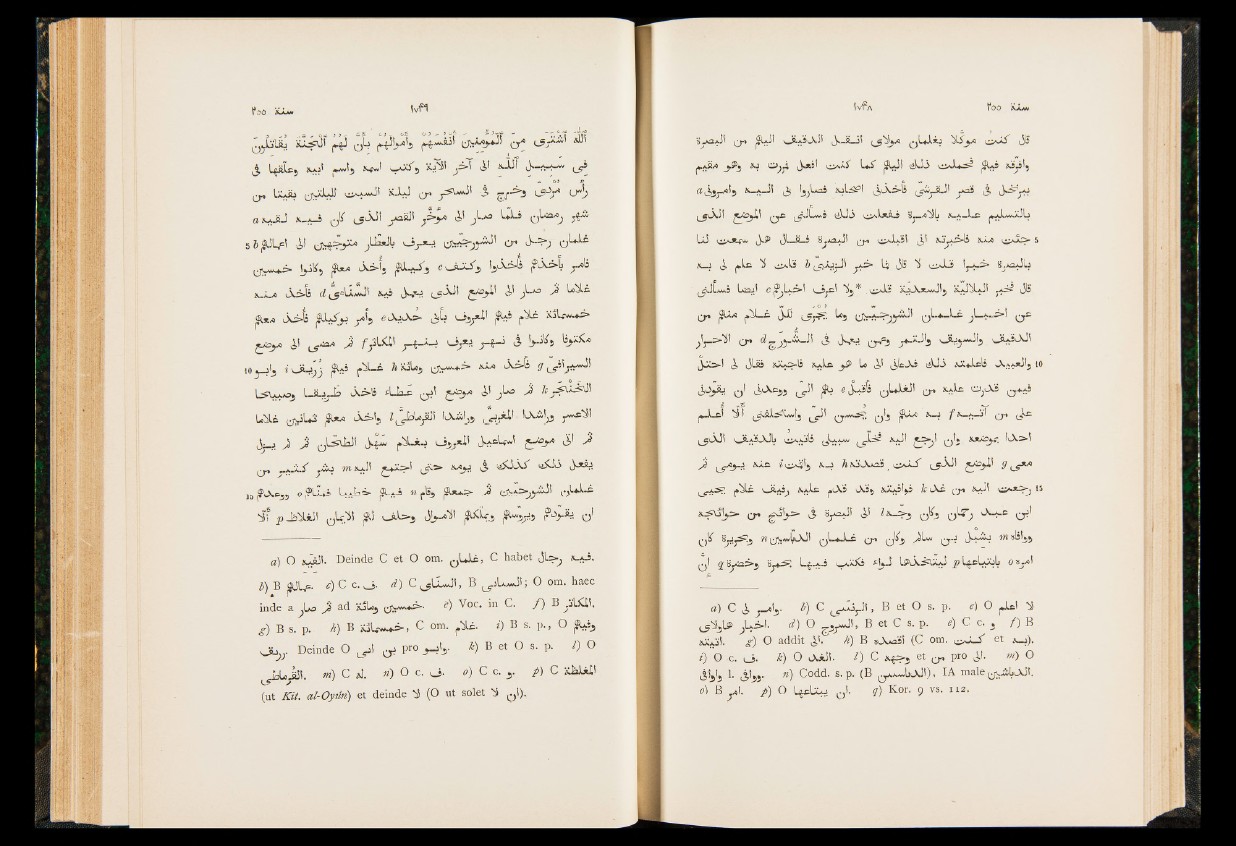 سنة ٢٥٥
١٧۴٨
قال كنت موكّلا بغلمان مولاى انقـل الدقيق اليهم من البصرة
وافرّقه فيهم فحملت ذلك اليهم كما كنت افعل فمررت به وهو مقيم
ببرنخل فى قصر القرشىّ فأخذنى اصحابه فصاروا بى اليه وامرونى a
بالتسليم عليه بالامرة ففعلت ذلك فسألنى عن الموضع الذى
5 جئت منه فاخبرته انى اقبلت من البصرة فقال هل سمعت لنا
بالبصرة خبرا قلت لا قال فما خبر الزينبىّ b قلت لا علم لى به
قال فخبر البلاليّة والسعديّة قلت *ولا اعرف اخبارهم c ايضا فسألنى
عن اخبار غلمان الشورجيّين وما يجرى لكلّ غلام منهم من
الدقيق والسويق والتمر وعمن يعمل فى الشورج d من الاحرار
10 والعبيد فاعلمته ذلك فدعانى الى ما هو عليه فاجبته فقال لى احتل
فيمن قدرت عليه من الغلمان فأقبل e بهم الىّ ووعدنى ان يقودنى
على من آتيه به f منهم وان يحسن الىّ واستحلفنى ألّا أعلم
احدا بموضعه وان ارجع اليه فخلّى سبيلى فأتيت بالدقيق الذى
معى g الموضع الذى كنت قصدته h به واقمت i عنه يومى ثم
15 رجعت اليه من غد k فوافيته وقد قدم عليه رفيق غلام يحيى
ابن عبد الرحمن وكان وجّهه l الى البصرة فى حوائج من حوائجه
ووافاه m بشبل بن سالم وكان من غلمان الدباسين n وبحريرة كان
امره o بابتياعها p ليتخذها لواء فكتب فيها بحمرة وخضرة q إنّ
a) C وامر لى. b) C الزينبى, B et O s. p. c) O لا اعلم
اخبار هاولاى. d) O السروج, B et C s. p. e) C c. و f) B
اتيته. g) O addit الى. h) B اقصده (C om. كنت et به).
i) O c. ف. k) O الغد. l) C وجهه et من pro الى. m) O
وأوافى l. ووافى. n) Codd. s. p. (B الدباسين), IA male الدباشين.
o) B امر. p) O ان يبتاعها. q) Kor. 9 vs. 112.
سنة ٢٥٥
١٧۴٩
ٱللّٰهَ ٱشْتَرَى مِنَ ٱلْمُؤْمِنِينَ أَنْفُسَهُمْ وَأَمْوَالَهُمْ بِأَنَّ لَهُمُ ٱلْجَنَّةَ يُقَاتِلُونَ
فِى سَبِيلِ ٱللّٰهِ الى آخر الآية وكتب اسمه واسم ابيه وعلّقها فى
رأس مُرْدىّ وخرج فى السحر من ليلة السبت لليلتين بقيتا من
شهر رمضان فلمّا صار الى مؤخّر القصر الذى كان فيه لقيه a
5 غلمان رجل من الشورجيّين يعرف بالعطّار متوجّهين الى اعمالهم b
فامر بأخذهم فأخذوا وكتف c وكيلهم وأخذ معهم وكانوا خمسين
غلاما ثم صار الى الموضع الذى يعمل فيه السنّائىّ d فأخذ منه
خمسمائة غلام فيهم المعروف بأبى حديد e وأمر بوكيلهم فأخذ معهم
مكتوفا وكانوا فى نهر يعرف بنهر المكاثر f ثم مضى الى موضع
10 السيرافىّ g فأخذ منه خمسين ومائة h غلام فيهم زريق i وابو
الخنجر k ثم صار الى موضع ابن عطاء فأخذ طريقا وصبيحا
الاعسر وراشدا المغربىّ وراشدا القرماطىّ l وأخذ معهم ثمانين غلاما
ثم الى موضع اسماعيل المعروف بغلام سهل الطحّان ثم لم يزل
يفعل ذلك كذلك فى يومه حتى اجتمع اليه m بشر كثير من
15 غلمان الشورجيّين ثم جمعهم وقام n فيهم خطيبا فمنّاهم o ووعدهم
ان يقوّدهم ويرؤّسهم ويملّكهم الاموال وحلف لهم الأيمان الغلاظ p ألّا
a) O الفيه. Deinde C et O om. غلمان, C habet رجال فيه.
b) B عملهم. c) C c. ف. d) C السنائى, B السنانى; O om. haec
inde a ثم صار ad خمسين ومائة. e) Voc. in C. f) B المكاثر.
g) B s. p. h) B خمسمائة, C om. غلام. i) B s. p., O وفيهم
وزريق. Deinde O بن ابى pro وابو. k) B et O s. p. l) O
القرمطى. m) C له. n) O c. ف. o) C c. و. p) C المغلظة
(ut Kit. al-Oyûn) et deinde لا (O ut solet ان لا).